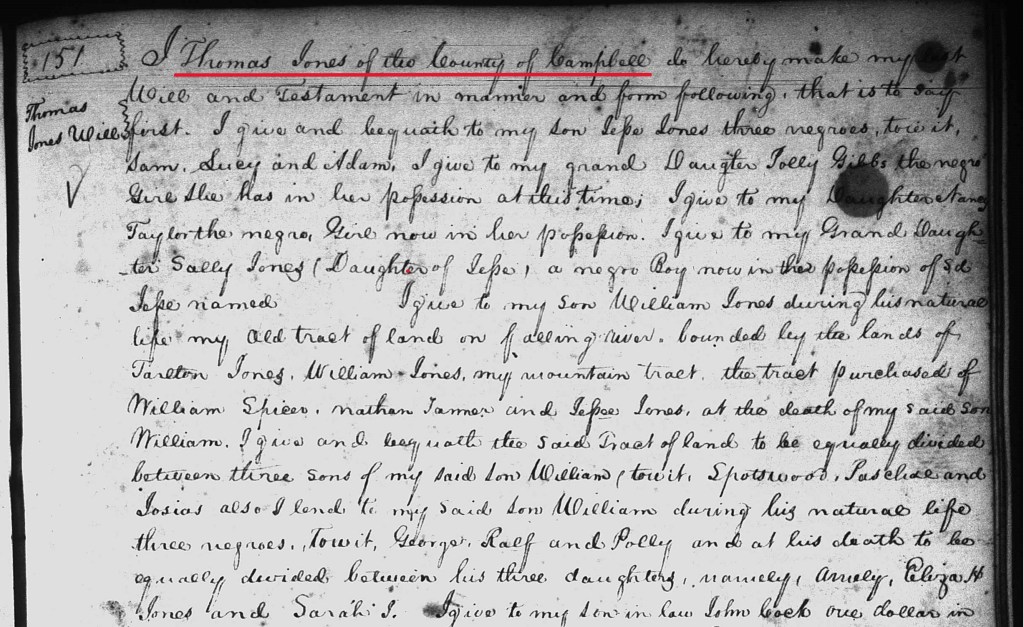 151
Thomas
Jones Will
I Thomas Jones of the County of Campbell do hereby make my last
Will and Testament in manner and form following, that is to say
first. I give and bequath to my son Jesse Jones three negroes, towit,
Sam, Lucy and Adam, I give to my grand Daugter Polly Gibbs the negro
Girl She has in her possession at this time; I give to my Daughter Nancy
Taylor the negro, Girl now in her possession. I give to my Grand Daugh-
-ter Sally Jones (Daughter of Jesse) a negro Boy now in the possession of Sd
Jesse named I give to my son William Jones during his natural
life my old tract of land on falling river. bounded by the lands of
Tarlton Jones, William Jones, my mountain tract, the tract purchased of
William Spicer, nathan Tanner and Jesse Jones, at the death of my said Son
William, I give and bequath the said Tract of land to be equally divided
between three sons of my said son William (towit, Spotswood, Paschal and
Josias also I lend to my said son William during his natural life
three negroes, Towit, George, Ralf and Polly and at his death to be
equally divided between his three daughters, namely, Amely, Eliza H
Jones and Sarah J. I give to my son in law John Cock one dollar in